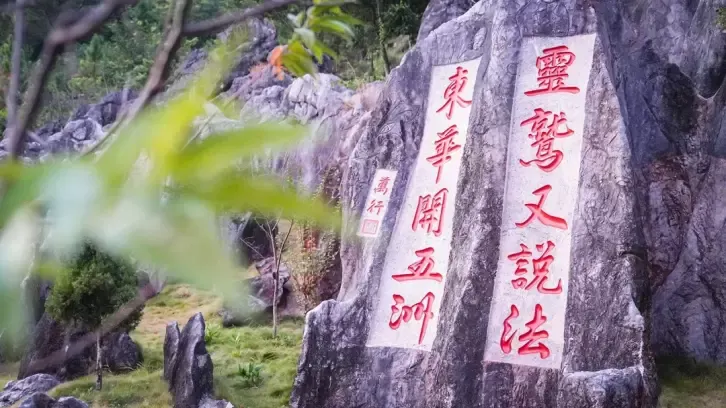 靈鷲又説法
東華開五洲
萬行